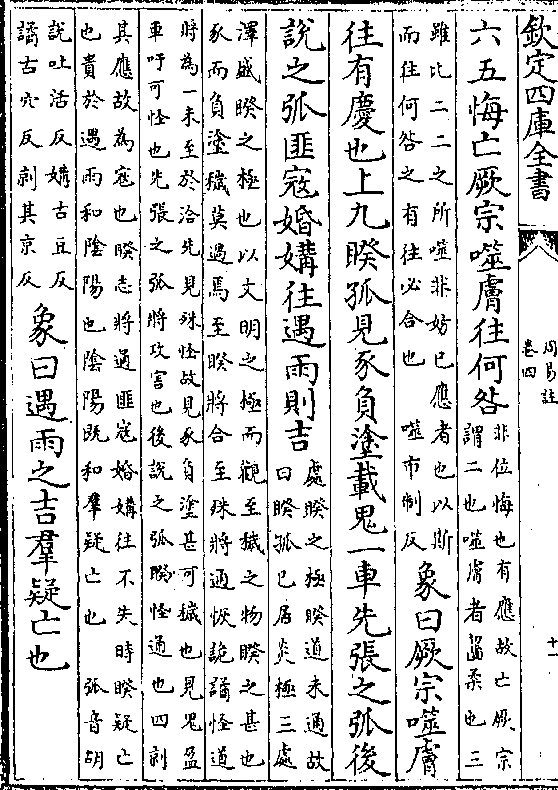 欽定四庫全書
周易註
卷四
十一
六五悔亡厥宗噬膚往何咎非位悔也有應故亡厥宗
謂二也噬膚者齧柔也三
雖比二二之所噬非妨已應者也以斯
而往何咎之有往必合也 噬市制反象曰厥宗噬膚
往有慶也上九睽孤見豕負塗載鬼一車先張之弧後
說之弧匪寇婚媾往遇雨則吉處睽之極睽道未通故
曰睽孤已居炎極三處
澤盛睽之極也以文明之極而觀至穢之物睽之甚也
豕而負塗穢莫過焉至睽將合至殊將通恢詭譎怪道
將為一未至於洽先見殊怪故見豕負塗甚可穢也見鬼盈
車吁可怪也先張之弧將攻害也後說之弧睽怪通也四剠
其應故為寇也睽志將通匪寇婚媾往不失時睽疑亡
也貴於遇雨和陰陽也陰陽既和羣疑亡也 弧音胡
說吐活反媾古豆反
譎古穴反剠其京反象曰遇雨之吉羣疑亡也